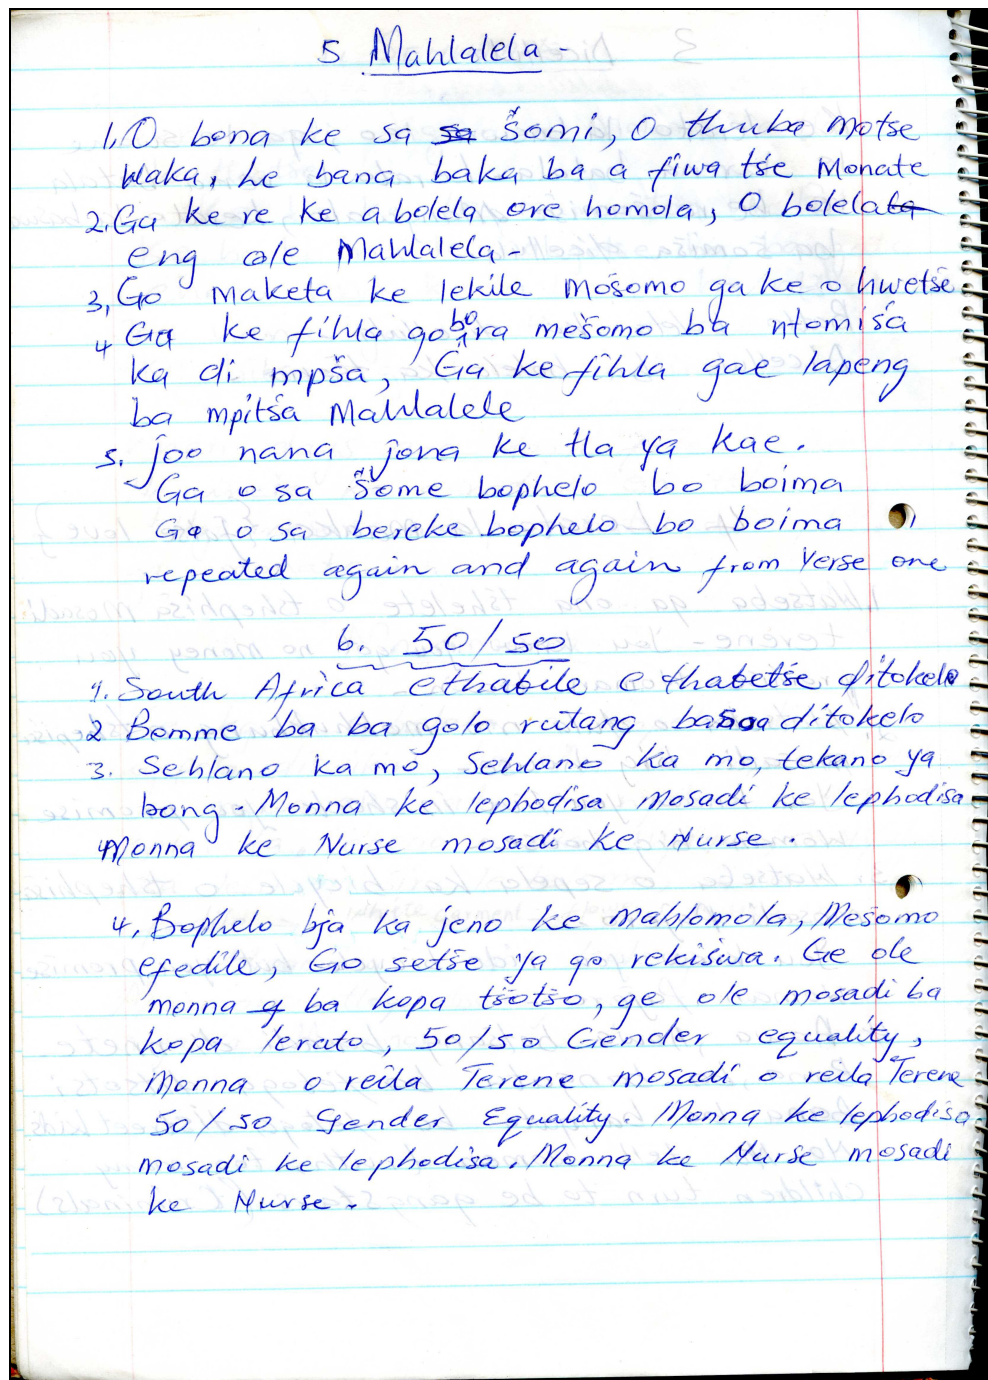 5 Mahlalela -
1, O bona ke sa sa šomi, O thuba motse
waka, Le bana baka ba a fiwa tše monate
2. Ga ke re ke a bolela ore homola, O bolelata
eng ole Mahlalela -
3, Go maketa ke lekile mošomo ga ke o hwetše
4 Ga ke fihla gobora mešomo ba ntomiša
ka di mpša, Ga ke fihla gae lapeng
ba mpitša Mahlalele
5. joo nana jona ke tla ya kae.
Ga o sa šome bophelo bo boima
Ga o sa bereke bophelo bo boima
repeated again and again from Verse one
6. 50/50
1. South Africa ethabile e thabetše ditokelo
2 Bomme ba ba golo rutang ditokelo
3. Sehlano ka mo, Sehlano ka mo, tekano ya
bong - Monna ke lephodisa mosadi ke lephodisa
4 Monna ke Nurse mosadi ke Nurse.
4, Bophelo bja ka jeno ke mahlomola, Mešomo
efedile, Go setše ya go rekišwa. Ge ole
monna ba kopa tšotšo, ge ole mosadi ba
kopa lerato, 50/50 Gender equality,
Monna o reila Terene mosadi o reila Terene
50/50 Gender Equality. Monna ke lephodisa
mosadi ke lephodisa. Monna ke Nurse mosadi
ke Nurse.